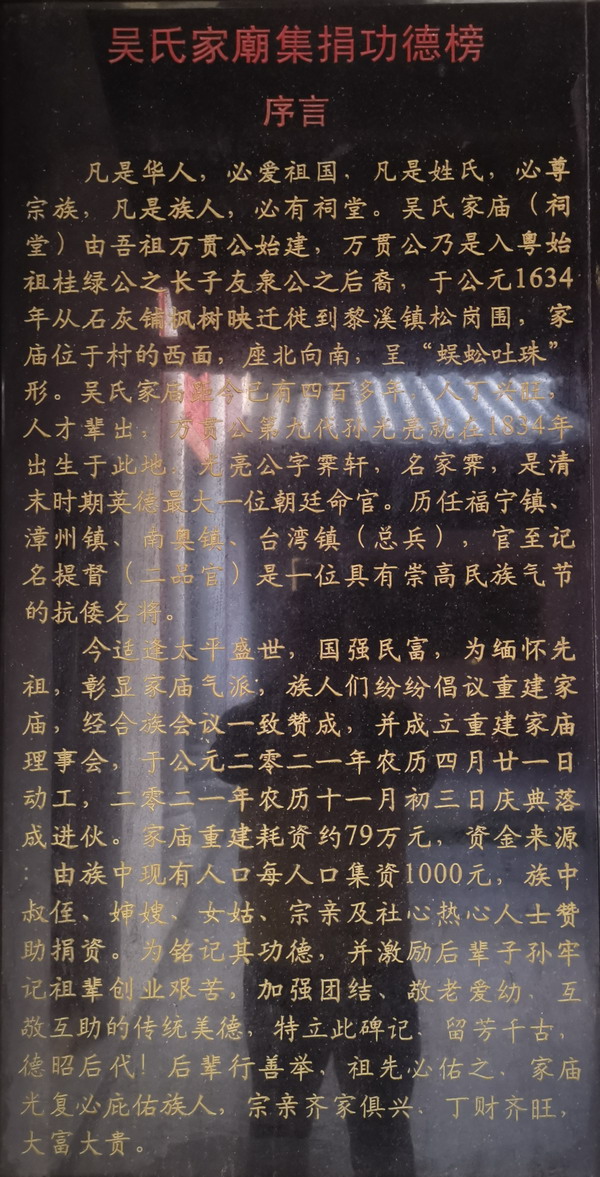 吴氏家廟集捐功德榜
序言
凡是华人，必爱祖国、凡是姓氏，必尊
宗族，凡是族人，必有祠堂。吴氏家庙（祠
堂）由吾祖万贯公始建，万贯公乃是入粤始
祖桂绿公之长子友泉公之后裔，于公元1634
年从石灰铺枫树映迁徙到黎溪镇松岗围，家
庙位于村的西面，座北向南，呈“蜈蚣吐珠”
形。吴氏家庙距今已有四百多年，人丁兴旺，
人才辈出，万贯公第九代孙光亮就在1834年
出生于此地，光亮公字霁轩，名家霁，是清
末时期英德最大一位朝廷命官。历任福宁镇、
漳州镇、南奥镇、台湾镇（总兵），官至记
名提督（二品官）是一位具有崇高民族气节
的抗倭名将。
今适逢太平盛世，国强民富，为缅怀先
祖，彰显家庙气派，族人们纷纷倡议重建家
庙，经合族会议一致赞成，并成立重建家庙
理事会，于公元二零二一年农历四月廿一日
动工，二零二一年农历十一月初三日庆典落
成进伙。家庙重建耗资约79万元，资金来源
：由族中现有人口每人口集资1000元，族中
叔侄、婶嫂、女姑、宗亲及社心热心人士赞
助捐资。为铭记其功德，并激励后辈子孙牢
记祖辈创业艰苦，加强团结、敬老爱幼、互
敬互助的传统美德，特立此碑记、留芳千古，
德昭后代！后辈行善举、祖先必佑之、家庙
光复必庇佑族人，宗亲齐家俱兴、丁财齐旺，
大富大贵。